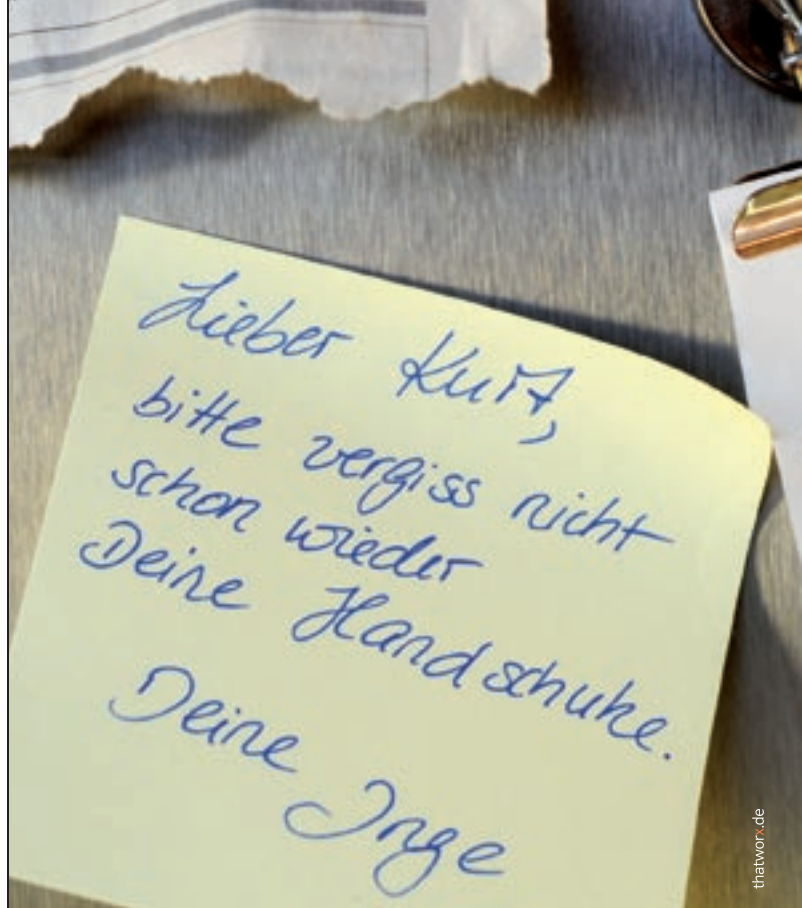 Lieber Kurt,
bitte vergiss nicht
schon wieder
Deine Handschuhe.
Deine Inge
thatworx.de